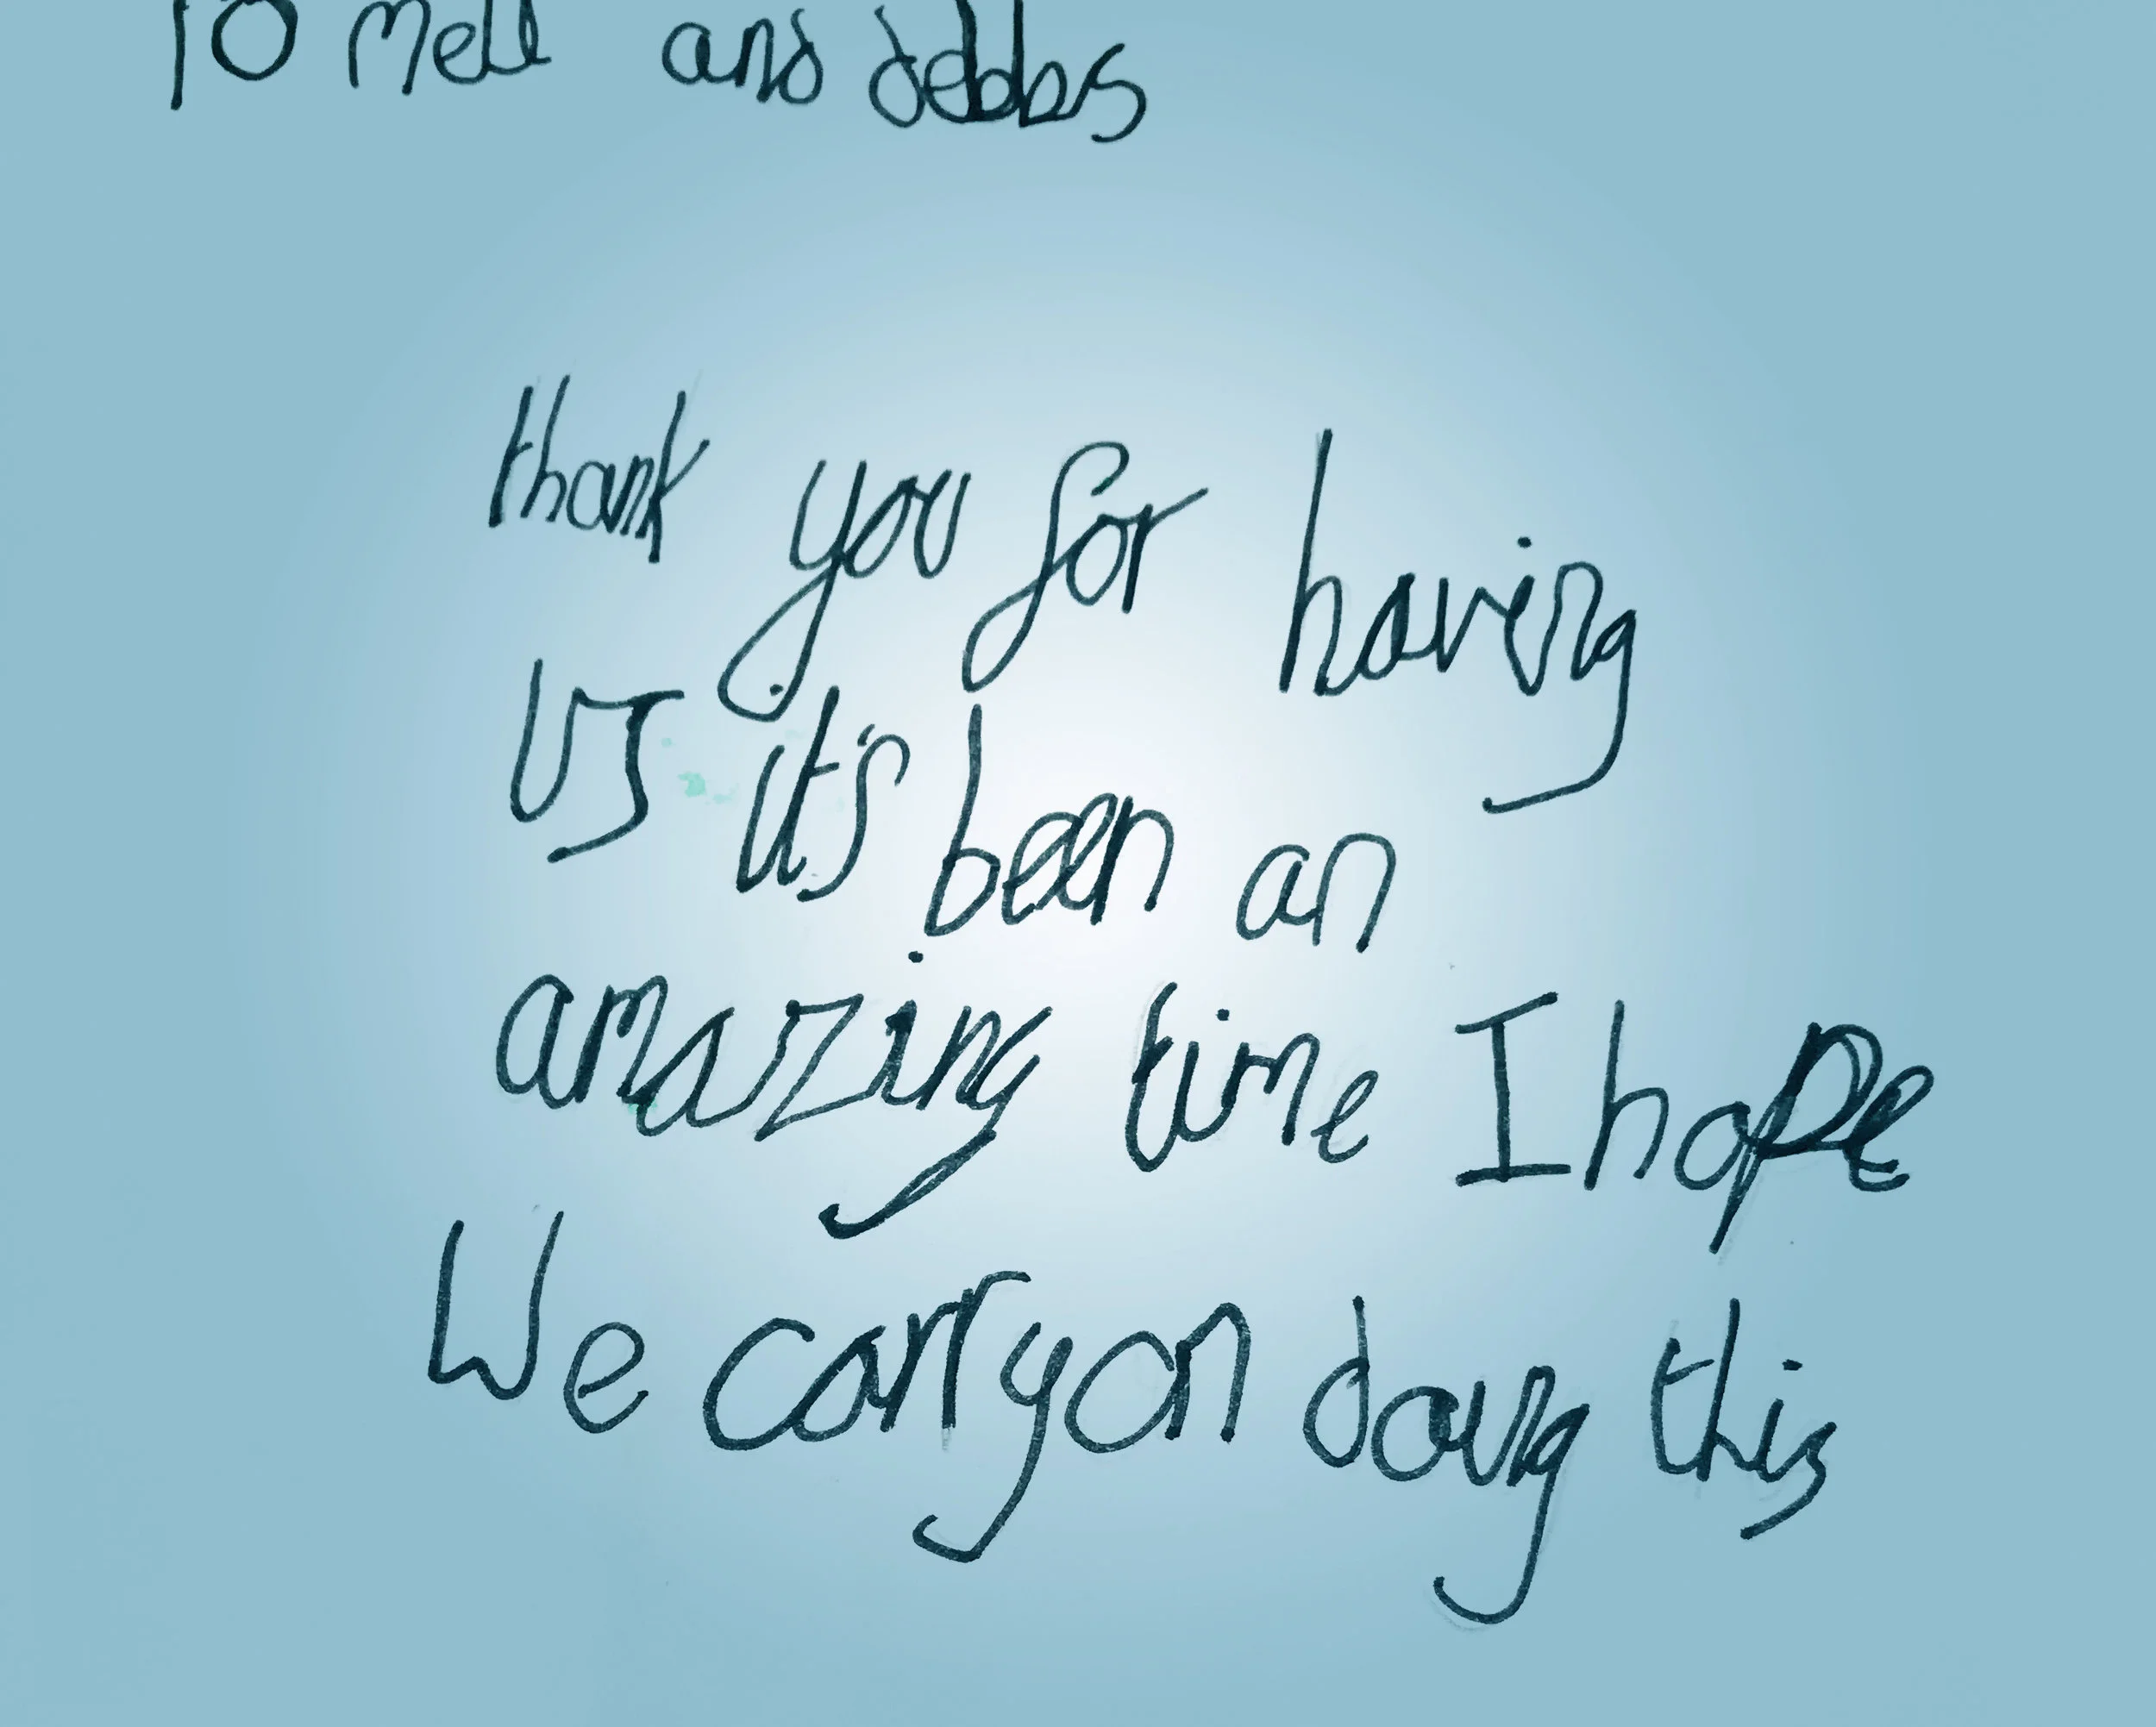 To Mell and debbs
thank you for having
us it's been an
amazing time I hope
We carry on doing this